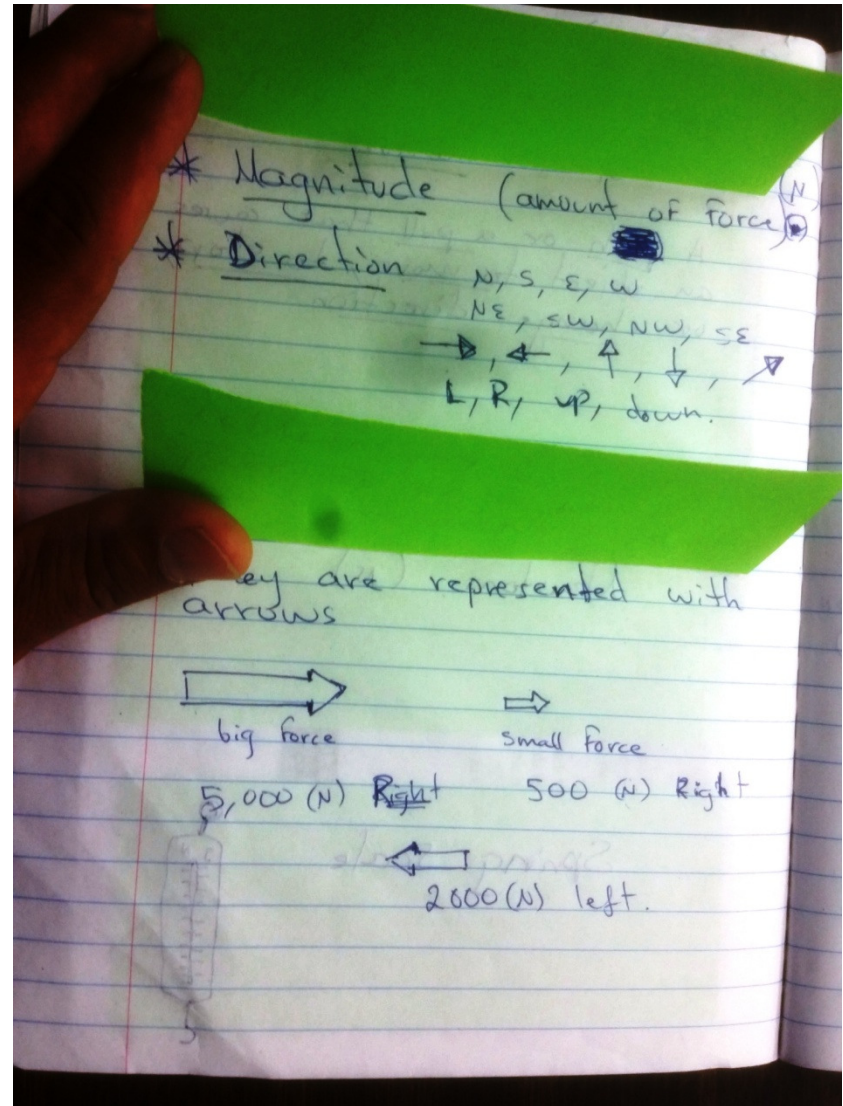 * Magnitude (amount of force) (N)
* Direction
N, S, E, W
NE, SW, NW, SE
→, ←, ↑, ↓, ↗
L, R, up, down.
ey are represented with
arrows
big force small force
5,000 (N) Right 500 (N) Right
2000 (N) left.